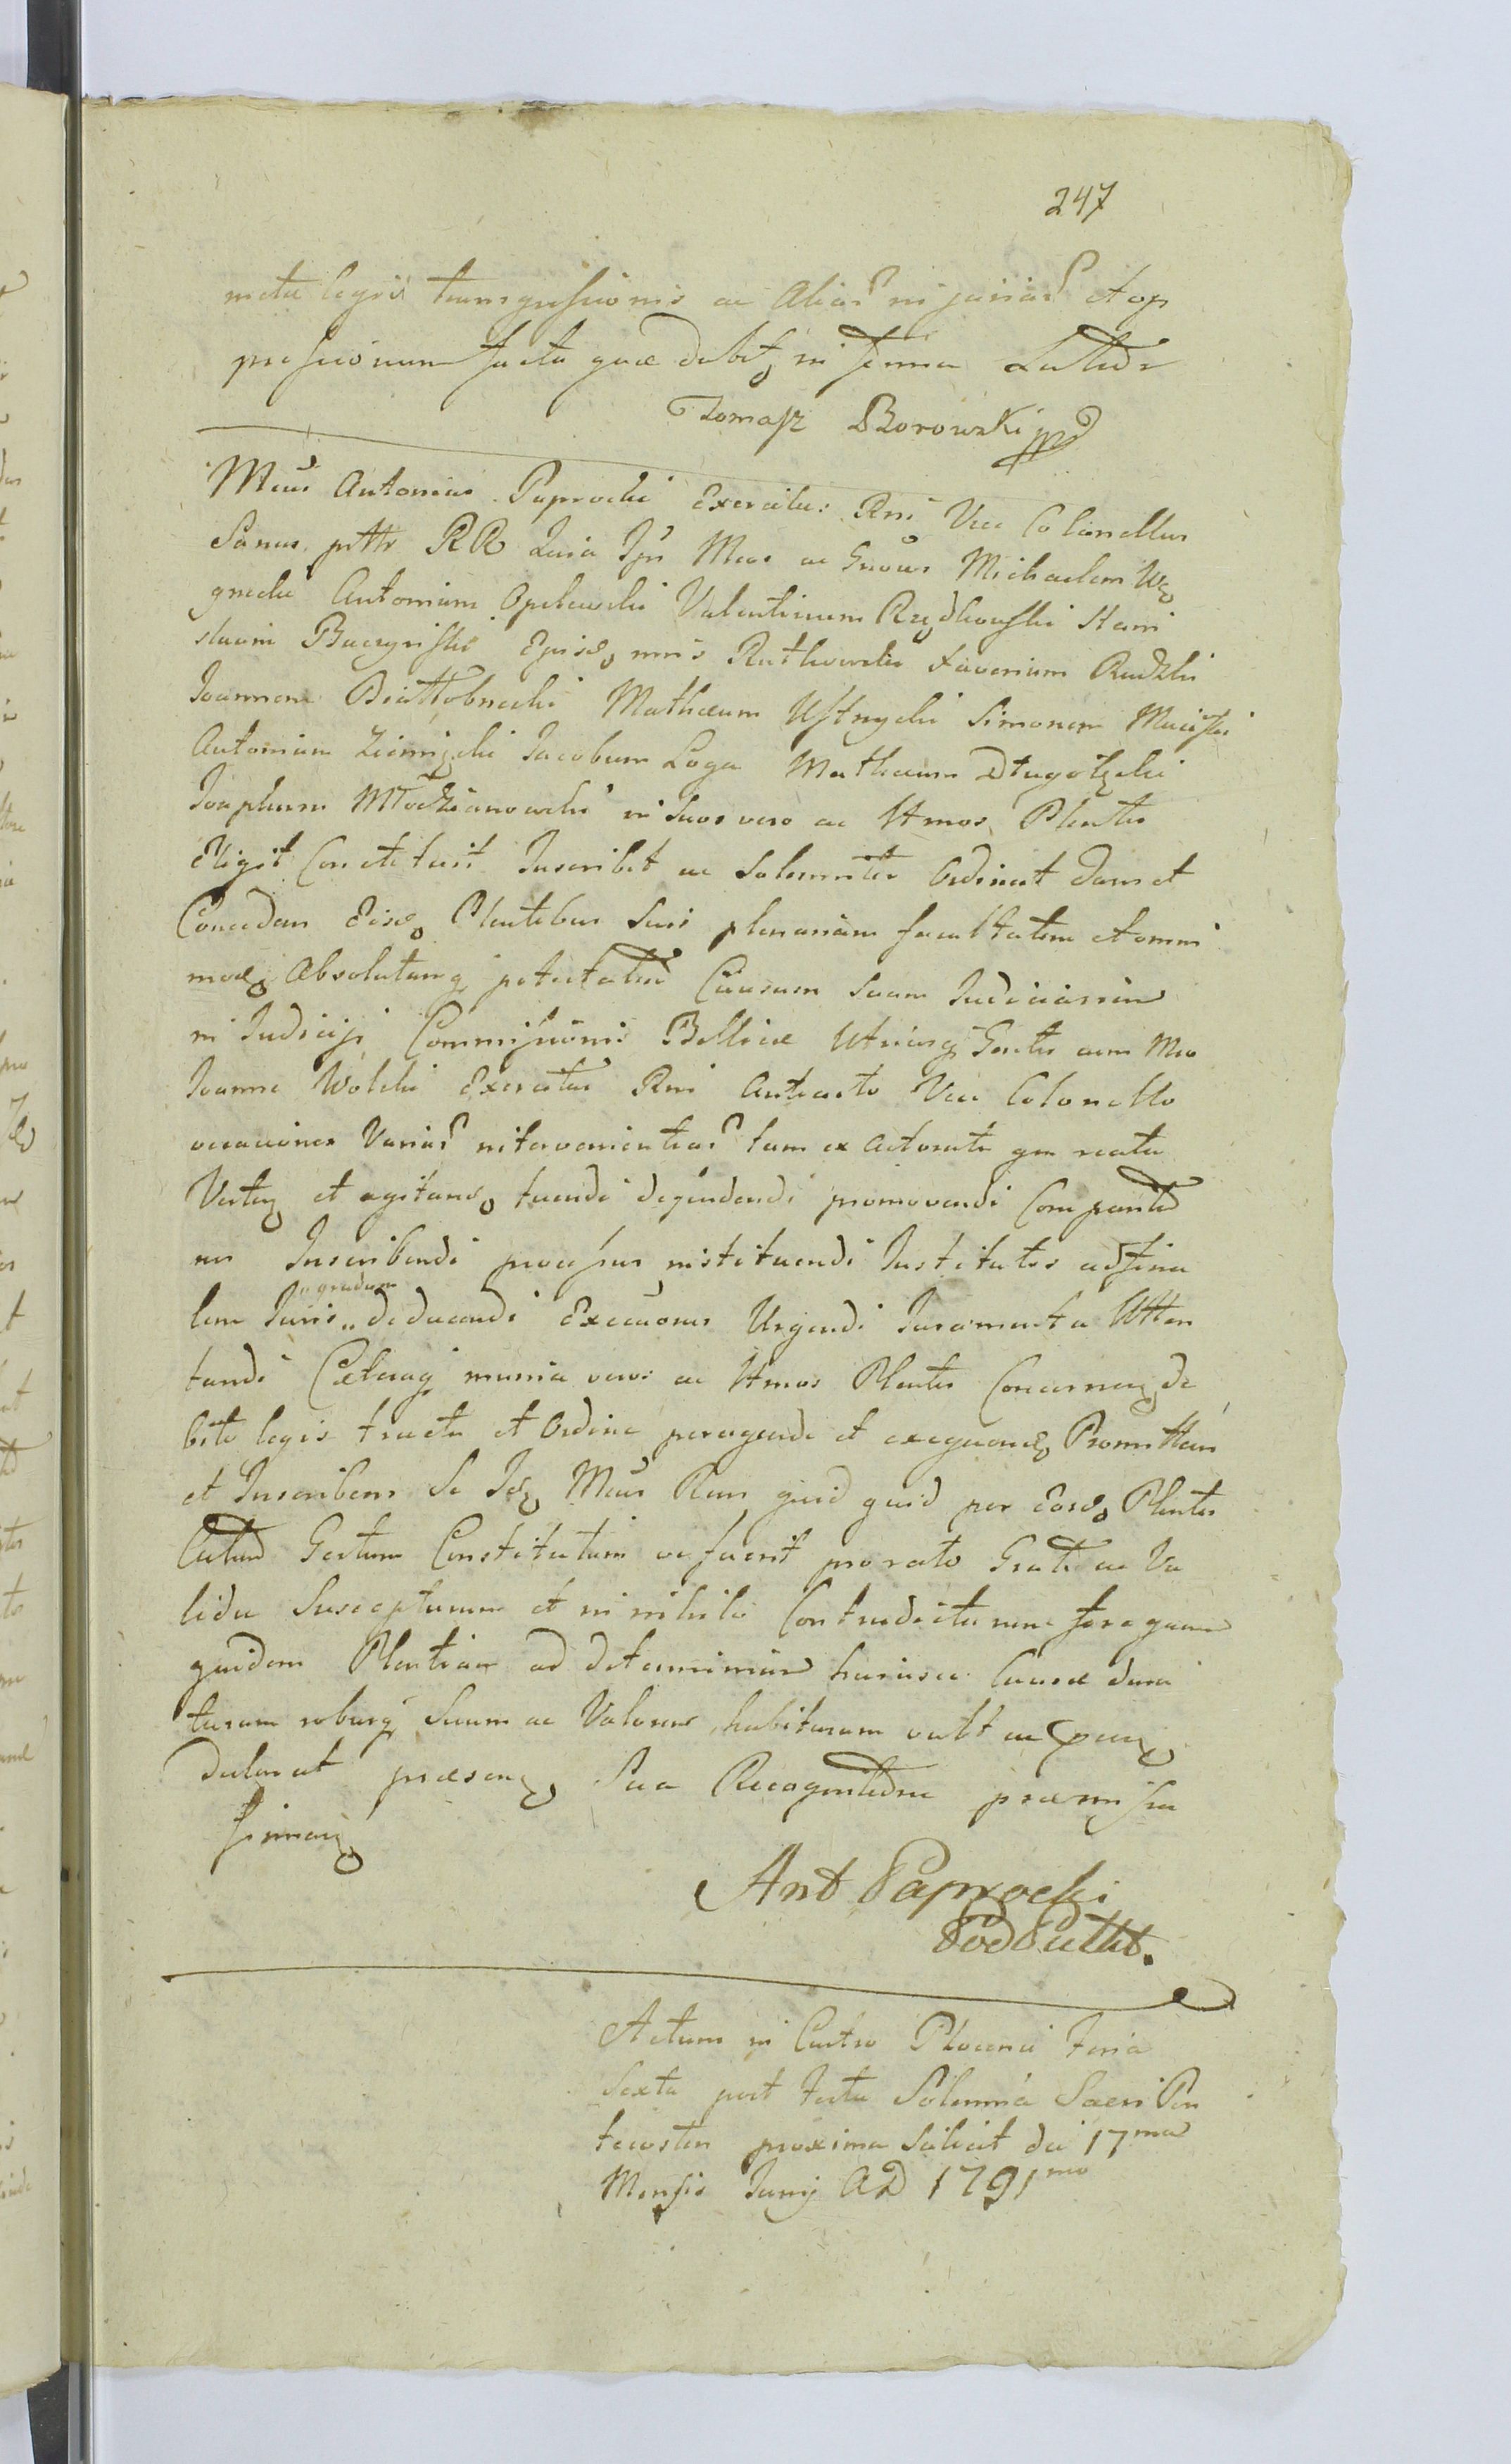 247
metu legis transgressionis ac Alias injurias et op
pressionum facta quae debit in forma Latius
Tomasz Borowski mpp
Mcus Antonius Paprocki Exercitus Rni Vice Colonellus
Sanus pttr RR Quia Ipse Mcos ac Gnosos Michaelem Wę
grecki Antonium Opelewski Valentinum Rzędkowski Stani
slaum Buczyński Rutkowski Xaverium Rudzki
Joannem Białłobrzeski Mathaeum Ustrzycki Simonem
Antonium Ziemięcki Jacobum Loga Mathaeum Długołęcki
Josephum Młodzianowski in suos veros ac lttmos Plentes
Eligit Constituit Inscribit ac Solemniter Ordinat dans et
Concedens Eisd Plentibus suis plenariam facultatem et omni
mod Absolutamq potestatem Causam suam Judiciariam
in Judicijs Commissionis Bellicae Utriusq Gentis cum Mco
Joanne Wolski Exercitus Rni Antiacto Vice Colonello
occasiones Varias intervenientias tam ex Actoratu qm reatu
Verten et agitand tuendi defendendi promovendi Comparitio
nes Inscribendi processus instituendi Institutos ad fina
lem Juris „ gradum „ deducendi Execuones Urgendi Juramenta Atten
tandi Caeteraq munia veros ac lttmos Plentes Concernen de
bito legis tractu et Ordine peragendi et exequend Promittens
et Inscribens Se Idem Mcus Rens quid quid per Eosd Plentes
Actum Gestum Constitutum ve fuerit pro rato Grato ac Va
lido Suscepturum et in nihilo Contradicturum fore quam
quidem Plentiam ad determinium hujusce Causae dura
turam roburq suum ac Valorem habituram vult ac
declarat praesen sua Recognitione praemissa
firman
Ant Paprocki
PodPułk.
Actum in Castro Plocensi Feria
Sexta post Festa Solennia Sacri Pen
tecostes proxima Scilicet die 17ma
Mensis Junij AD 1791mo